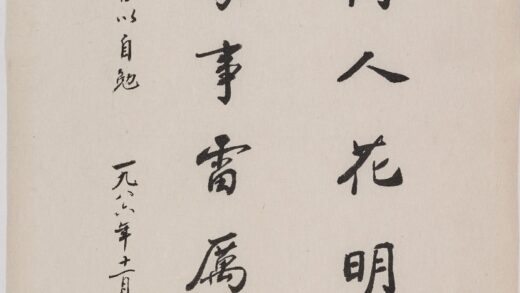 人花明
事雷厲
以自勉 一九八六年十一月